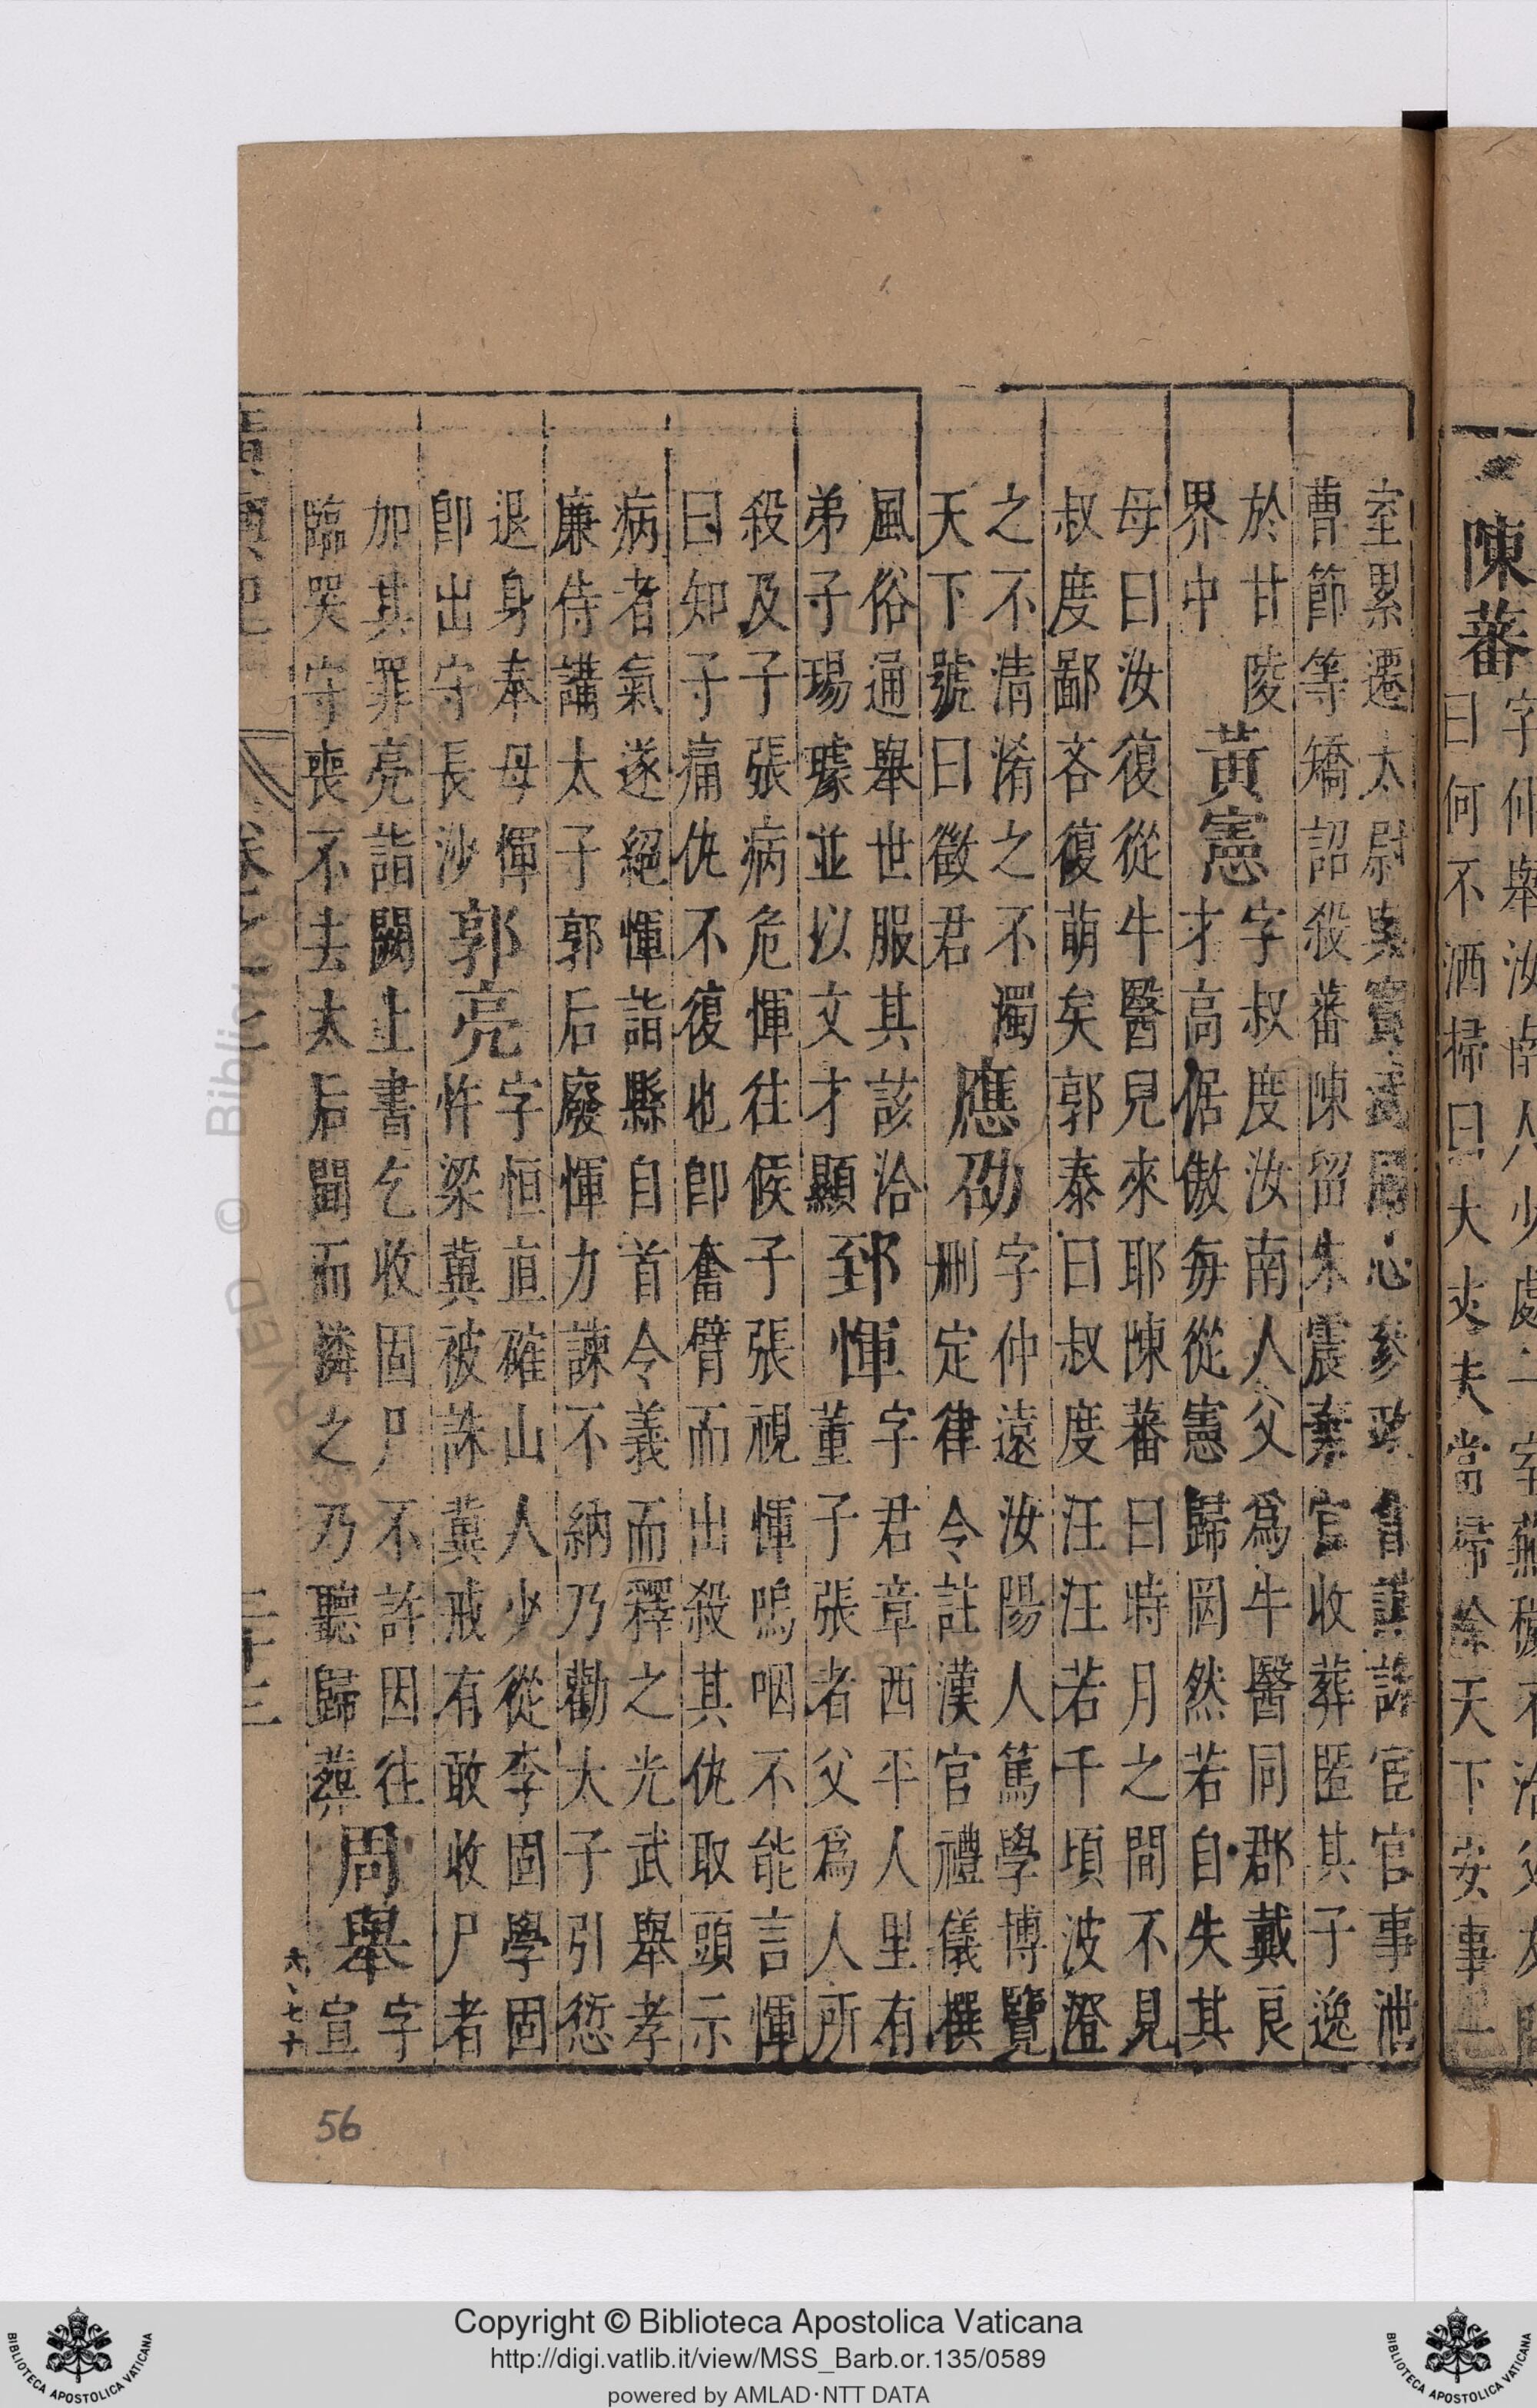 陳蕃
字仲舉汝南人少處一室蕪穢不治父友
曰何不洒掃曰大丈夫當掃除天下安事一
室累遷太尉與竇武同心參政首謀誅宦官事泄
曹節等矯詔殺蕃陳留朱震棄官收葬匿其子逸
於甘陵
界中
黃憲
字叔度汝南人父爲牛醫同郡戴良
才高倨傲每從憲歸罔然若自失其
母曰汝復從牛醫兒來耶陳蕃曰時月之間不見
叔度鄙吝復萌矣郭泰曰叔度汪汪若千頃波澄
之不清淆之不濁
天下號曰徵君
應劭
字仲遠汝陽人篤學博覽
刪定律令註漢官禮儀撰
風俗通舉世服其該洽
弟子瑒璩並以文才顯
郅惲
字君章西平人里有
董子張者父爲人所
殺及子張病危惲往候子張視惲嗚咽不能言惲
曰知子痛仇不復也卽奮臂而出殺其仇取頭示
病者氣遂絕惲詣縣自首令義而釋之光武舉孝
廉侍講太子郭后廢惲力諫不納乃勸太子引愆
退身奉母惲
卽出守長沙
郭亮
字恒直確山人少從李固學固
忤梁冀被誅冀戒有敢收尸者
加其罪亮詣闕上書乞收固尸不許因往
臨哭守喪不去太后聞而憐之乃聽歸葬
周舉
字
宣
六、七十
二十三
56
Copyright © Biblioteca Apostolica Vaticana
http://digi.vatlib.it/view/MSS_Barb.or.135/0589
powered by AMLAD·NTT DATA
BIBLIOTECA APOSTOLICA VATICANA
BIBLIOTECA APOSTOLICA VATICANA